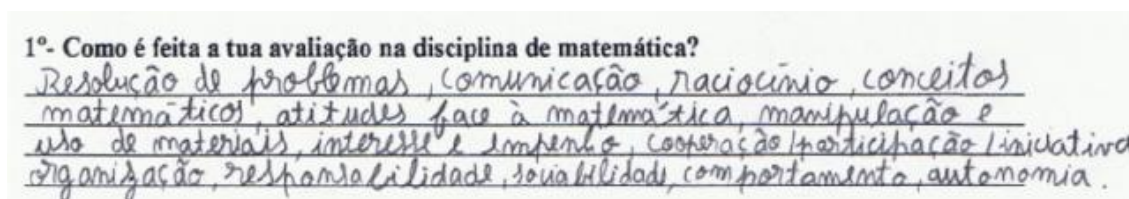 1º- Como é feita a tua avaliação na disciplina de matemática?
Resolução de problemas, comunicação, raciocínio, conceitos
matemáticos, atitudes face à matemática, manipulação e
uso de materiais, interesse e empenho, cooperação/participação/iniciativa
organização, responsabilidade, sociabilidade, comportamento, autonomia.